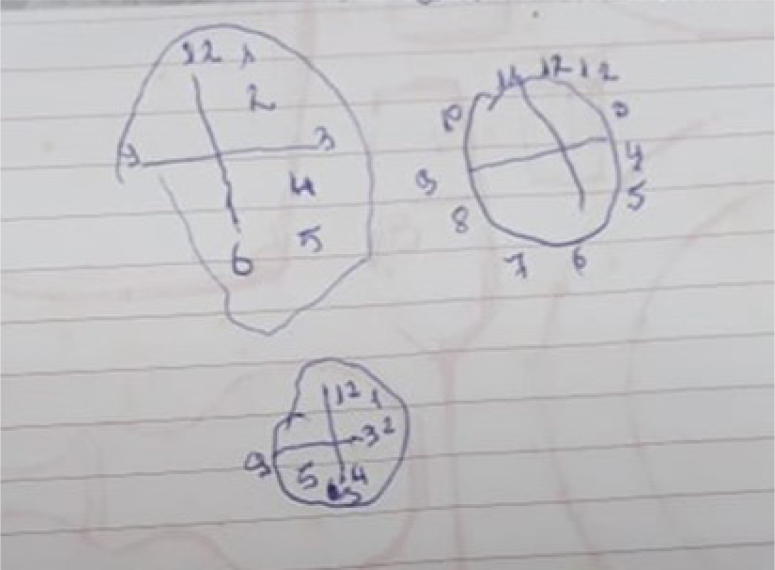 12 1
2
9 3
4
5
6
11 12 1 2
9 4
8 5
7 6
12 1
3 2
9 5 4